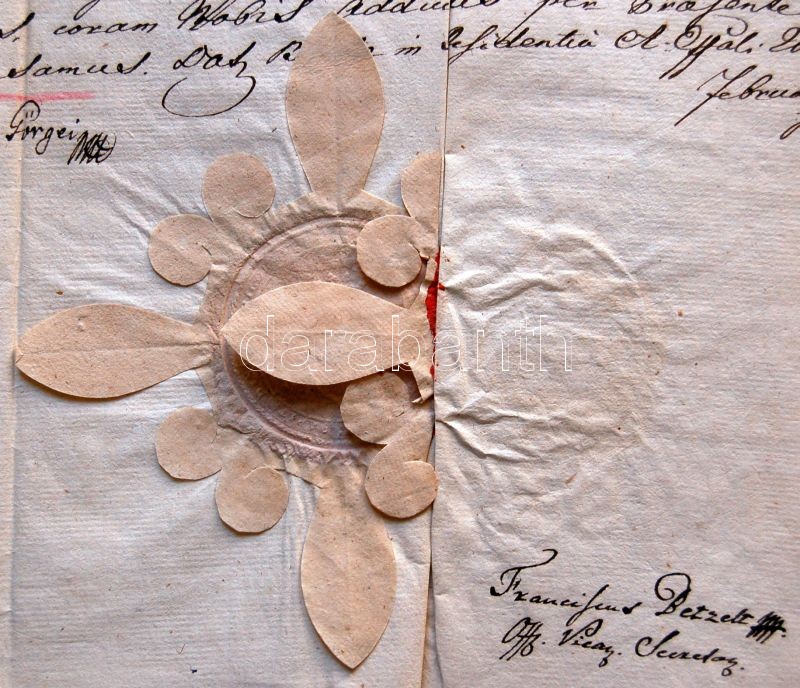 s, coram Nobis adducas per Præsente
samus. Dat B in Residentia A. Eppali.
Februa
Görgei
darabanth
Franciscus Petzelt
Off. Vican. Secretar.